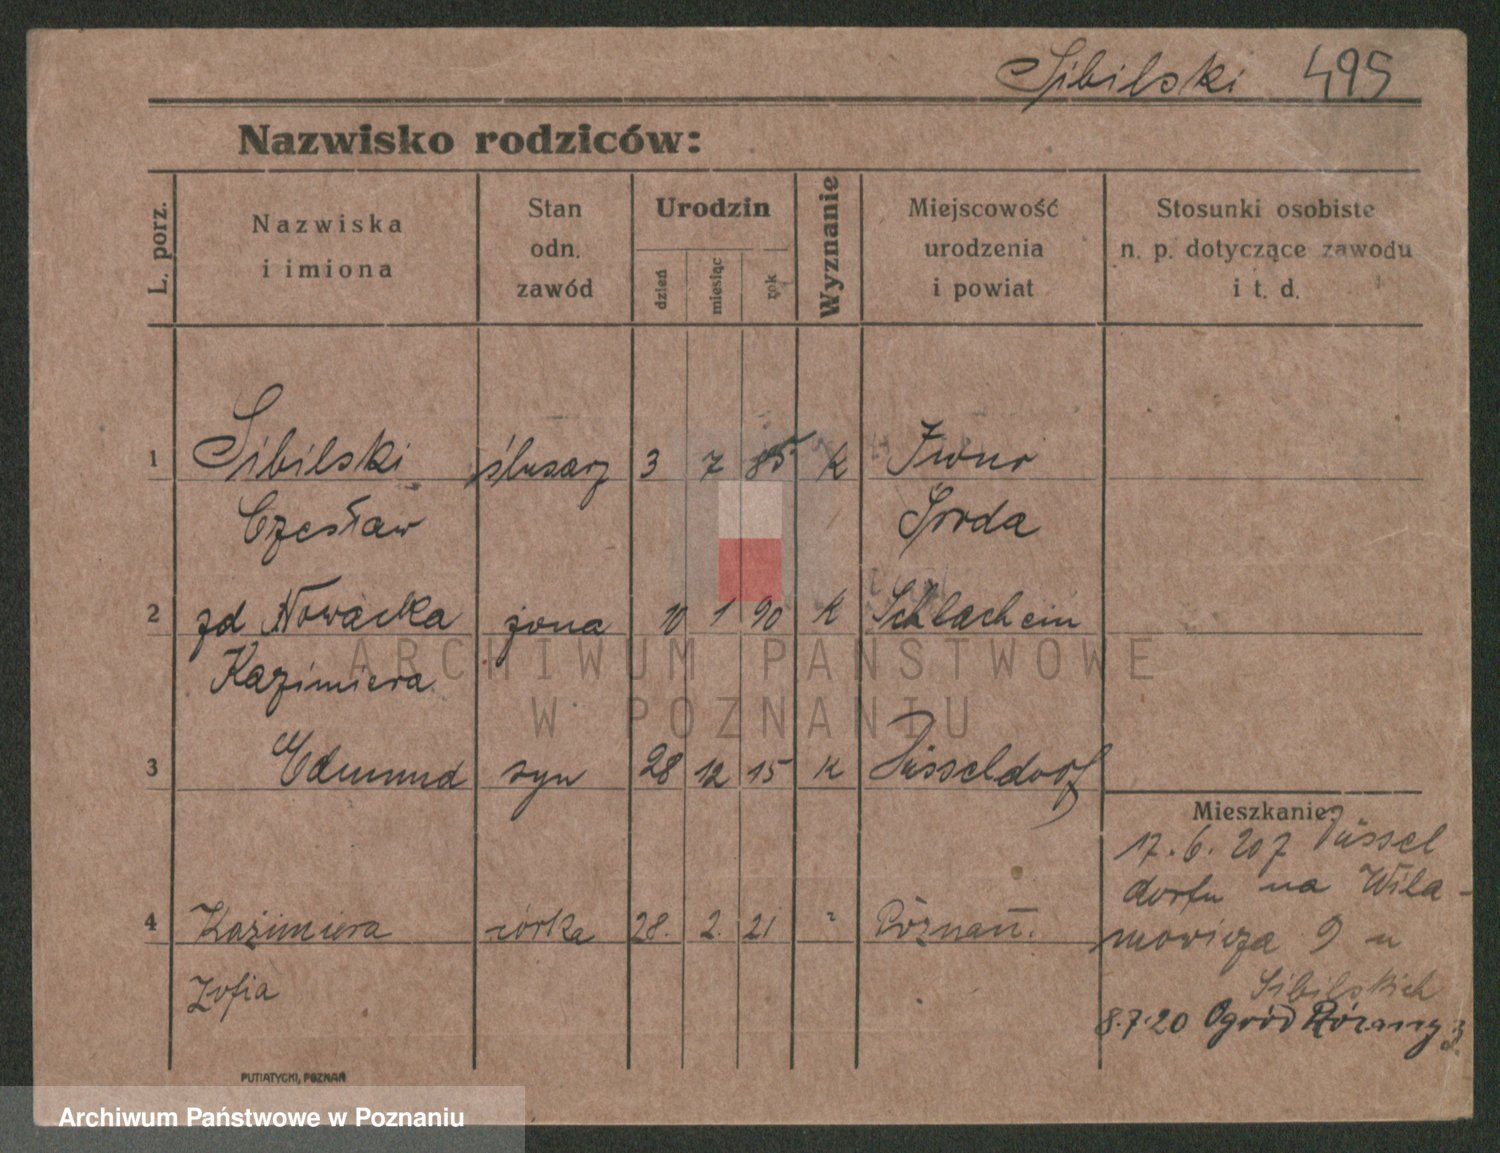 Sibilski 495
Nazwisko rodziców:
L. porz.
Nazwiska
i imiona
Stan
odn.
zawód
Urodzin
dzień
miesiąc
rok
Wyznanie
Miejscowość
urodzenia
i powiat
Stosunki osobiste
n. p. dotyczące zawodu
i t. d.
1 Sibilski ślusarz 3 7 85 K Iwno
Czesław Środa
2 zd Nowacka żona 10 1 90 K Schlachcin
Kazimiera
3 Edmund syn 28 12 15 K Düsseldorf
Mieszkanie:
17.6.20 z Düssel
dorfu na Wila-
4 Kazimiera córka 28. 2. 21 " Poznań.
mowicza 9 u
Zofia
Sibilskich
8.7.20 Ogród Różany 3.
PUTIATYCKI, POZNAŃ
ARCHIWUM PAŃSTWOWE
W POZNANIU
Archiwum Państwowe w Poznaniu